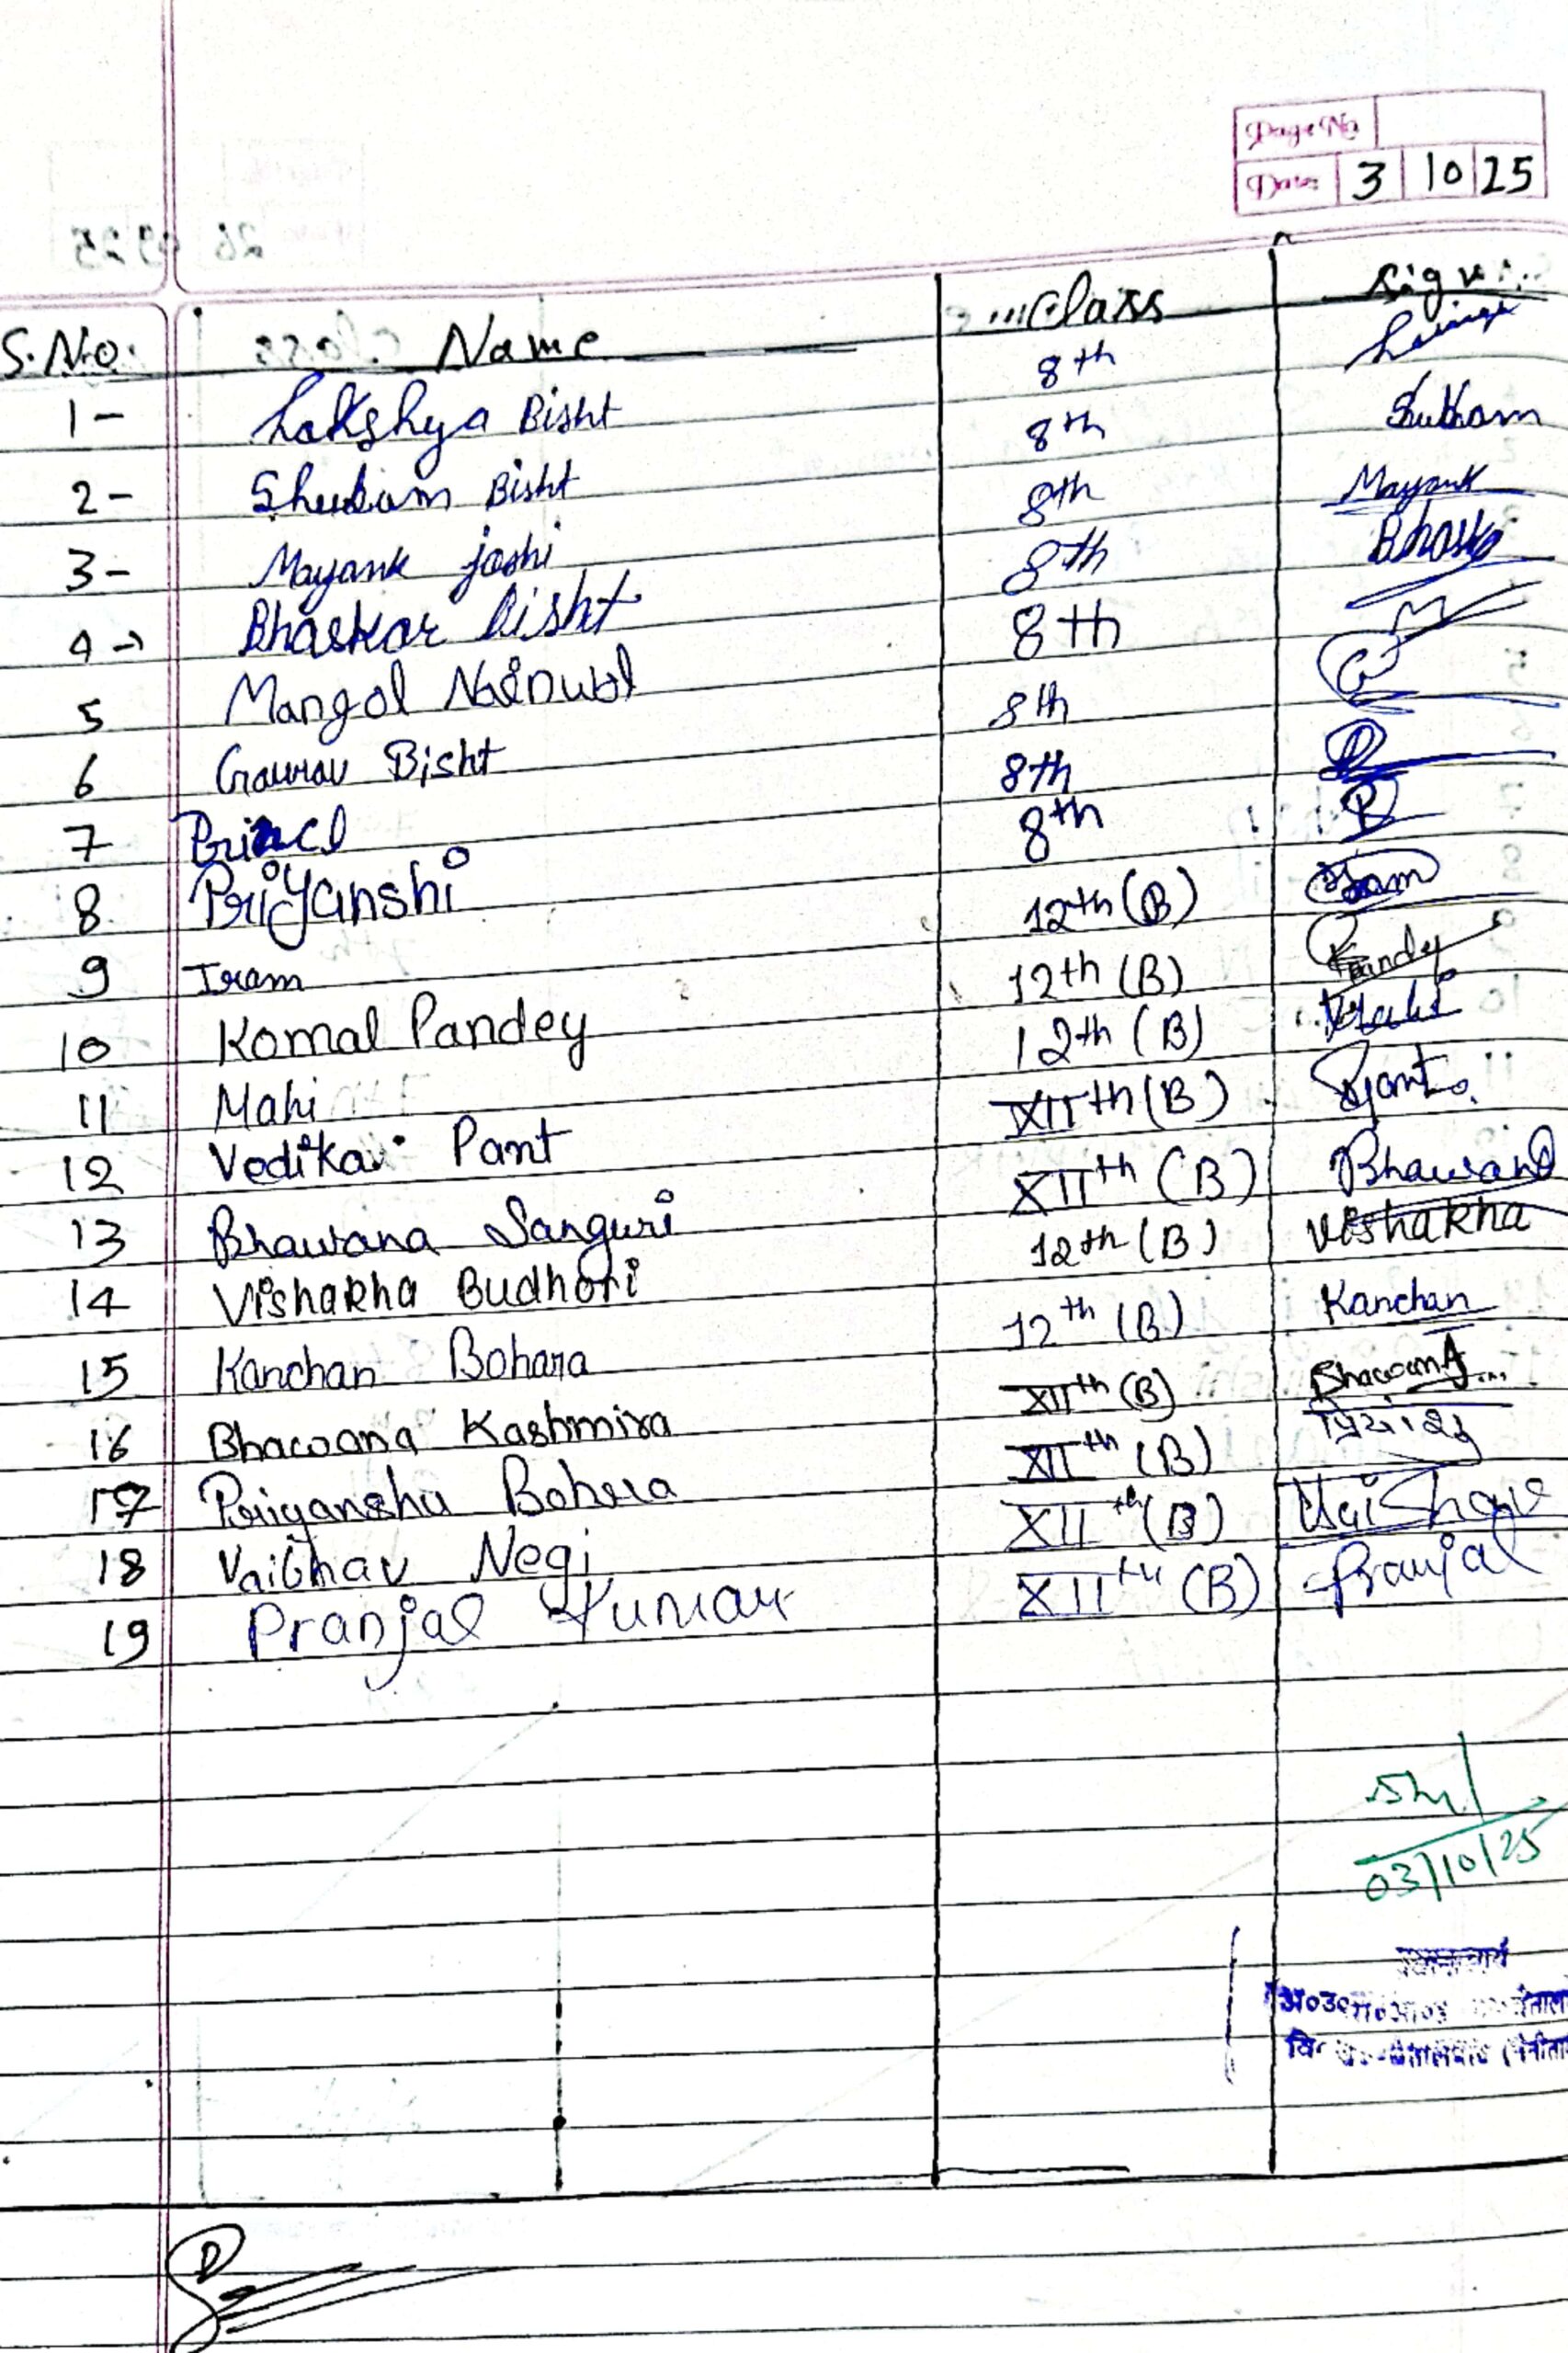 Page No
Date 3 10 25
S.No. Name Class Sign
1- Lakshya Bisht 8th
2- Shubam Bisht 8th Shubham
3- Mayank joshi 8th Mayank
4- Bhaskar Bisht 8th Bhask
5 Mangal Nainwal 8th
6 Gaurav Bisht 8th
7 Prince 8th
8 Priyanshi 8th
9 Iram 12th (B) Iram
10 Komal Pandey 12th (B) Pandey
11 Mahi 12th (B) Mahi
12 Vedika Pant XIIth (B) Pant.
13 Bhawana Sanguri XIIth (B) Bhawana
14 Vishakha Budhori 12th (B) Vishakha
15 Kanchan Bohara 12th (B) Kanchan
16 Bhawana Kashmira XIIth (B) Bhawana...
17 Priyanshu Bohra XIIth (B) प्रियांशु
18 Vaibhav Negi XIIth (B)
19 Pranjal Kumar XIIth (B) Pranjal
03/10/25